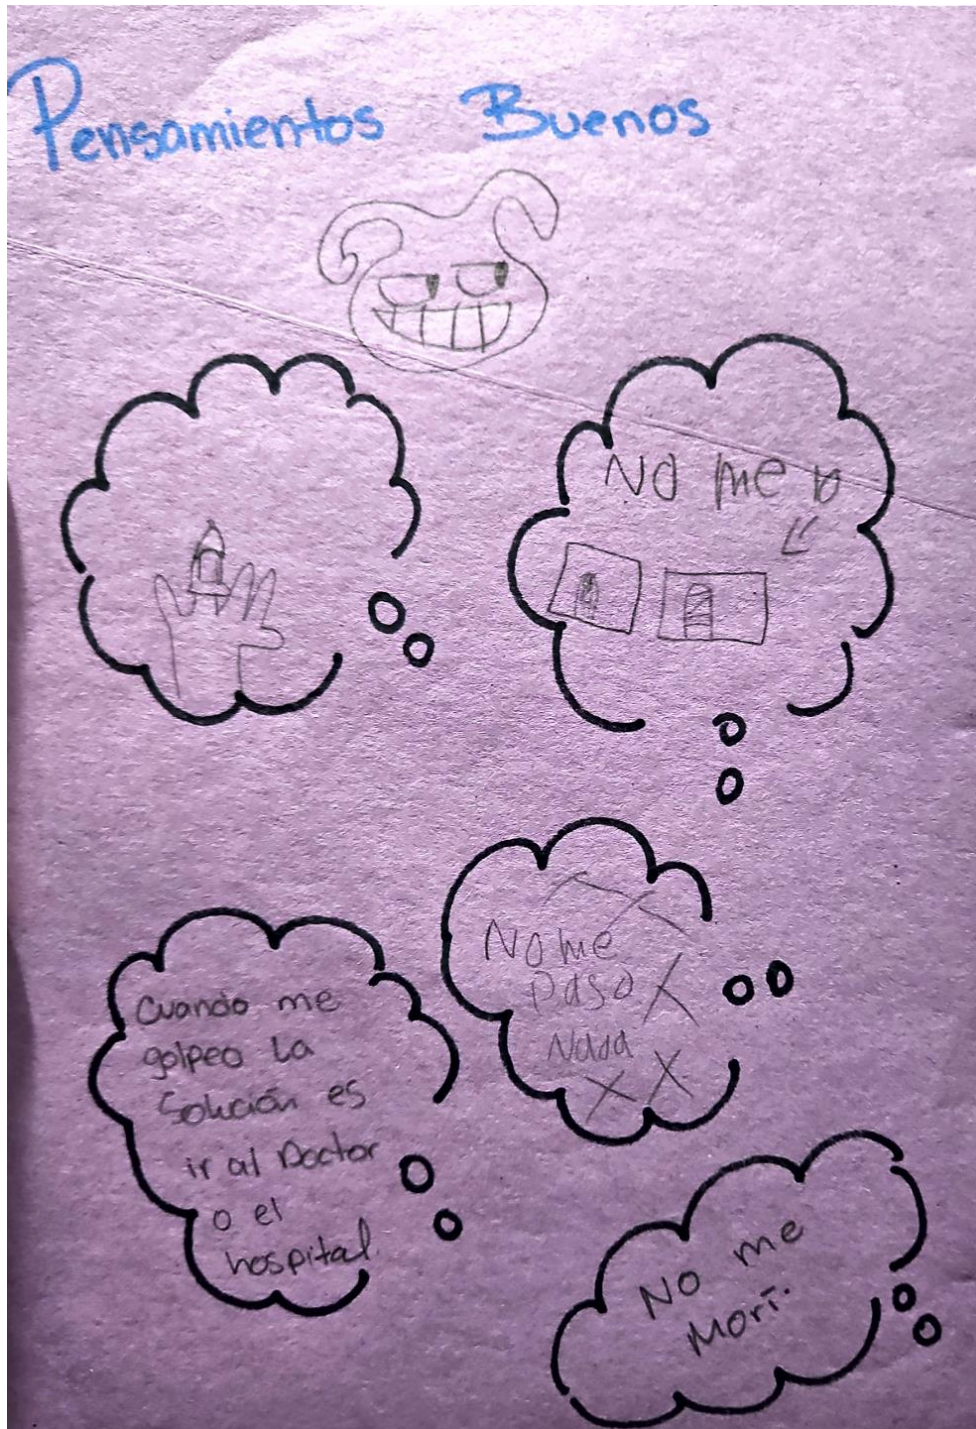 Pensamientos Buenos
No me
No me
paso
Nada
Cuando me
golpeo la
Solución es
ir al Doctor
o el
hospital.
No me
Morí.